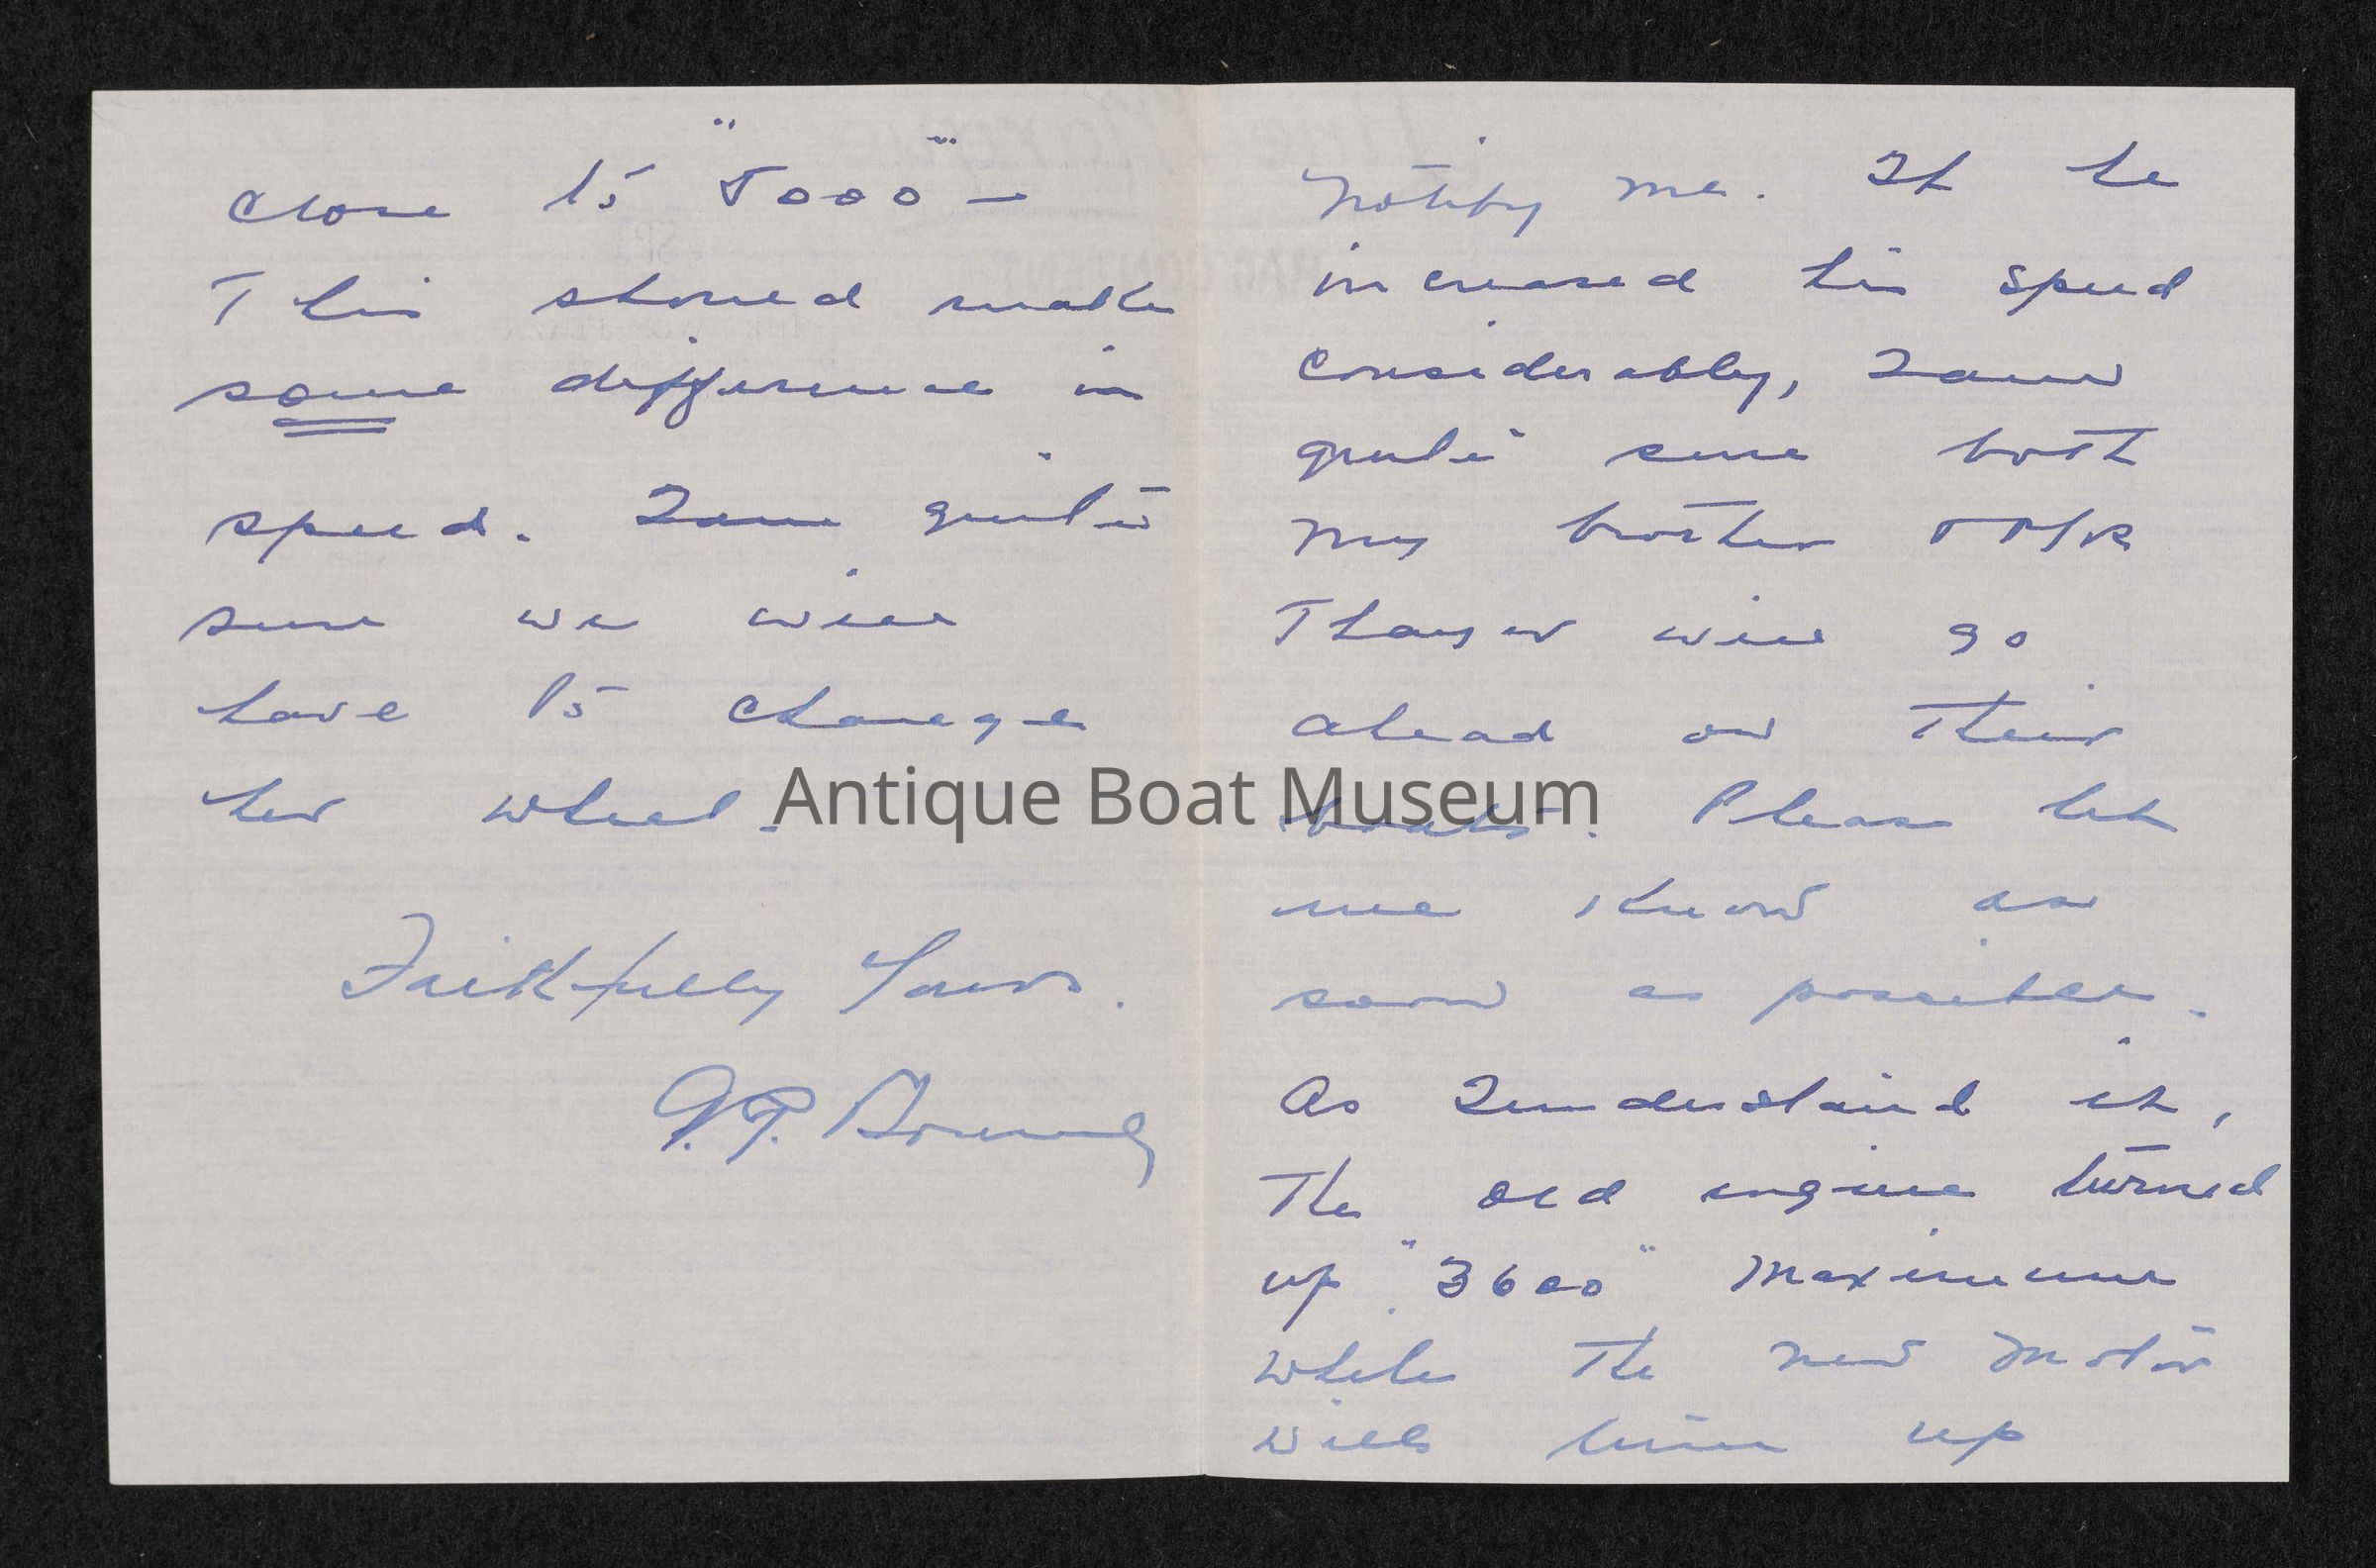 notify me. If he
increased his speed
considerably, I am
quite sure both
my brother
Thayer will go
ahead on their
boats. Please let
me know as
soon as possible.
As I understand it,
the old engine turned
up "3600" maximum
while the new motor
will turn up
close to "5000" —
This should make
some difference in
speed. I am quite
sure we will
have to change
her wheel.
Faithfully Yours.
Antique Boat Museum